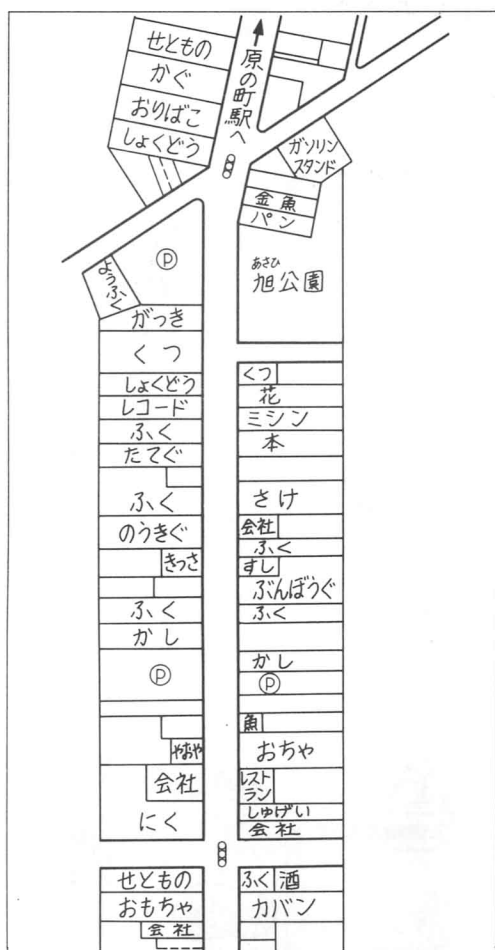 せともの
かぐ
おりばこ
しょくどう
↑原の町駅へ
ガソリン
スタンド
金魚
パン
あさひ
旭公園
Ⓟ
ようふく
がっき
くつ
しょくどう
レコード
ふく
たてぐ
ふく
のうきぐ
きっさ
ふく
かし
Ⓟ
やおや
会社
にく
くつ
花
ミシン
本
さけ
会社
ふく
すし
ぶんぼうぐ
ふく
かし
Ⓟ
魚
おちゃ
レスト
ラン
しゅげい
会社
せともの
おもちゃ
会社
ふく
酒
カバン